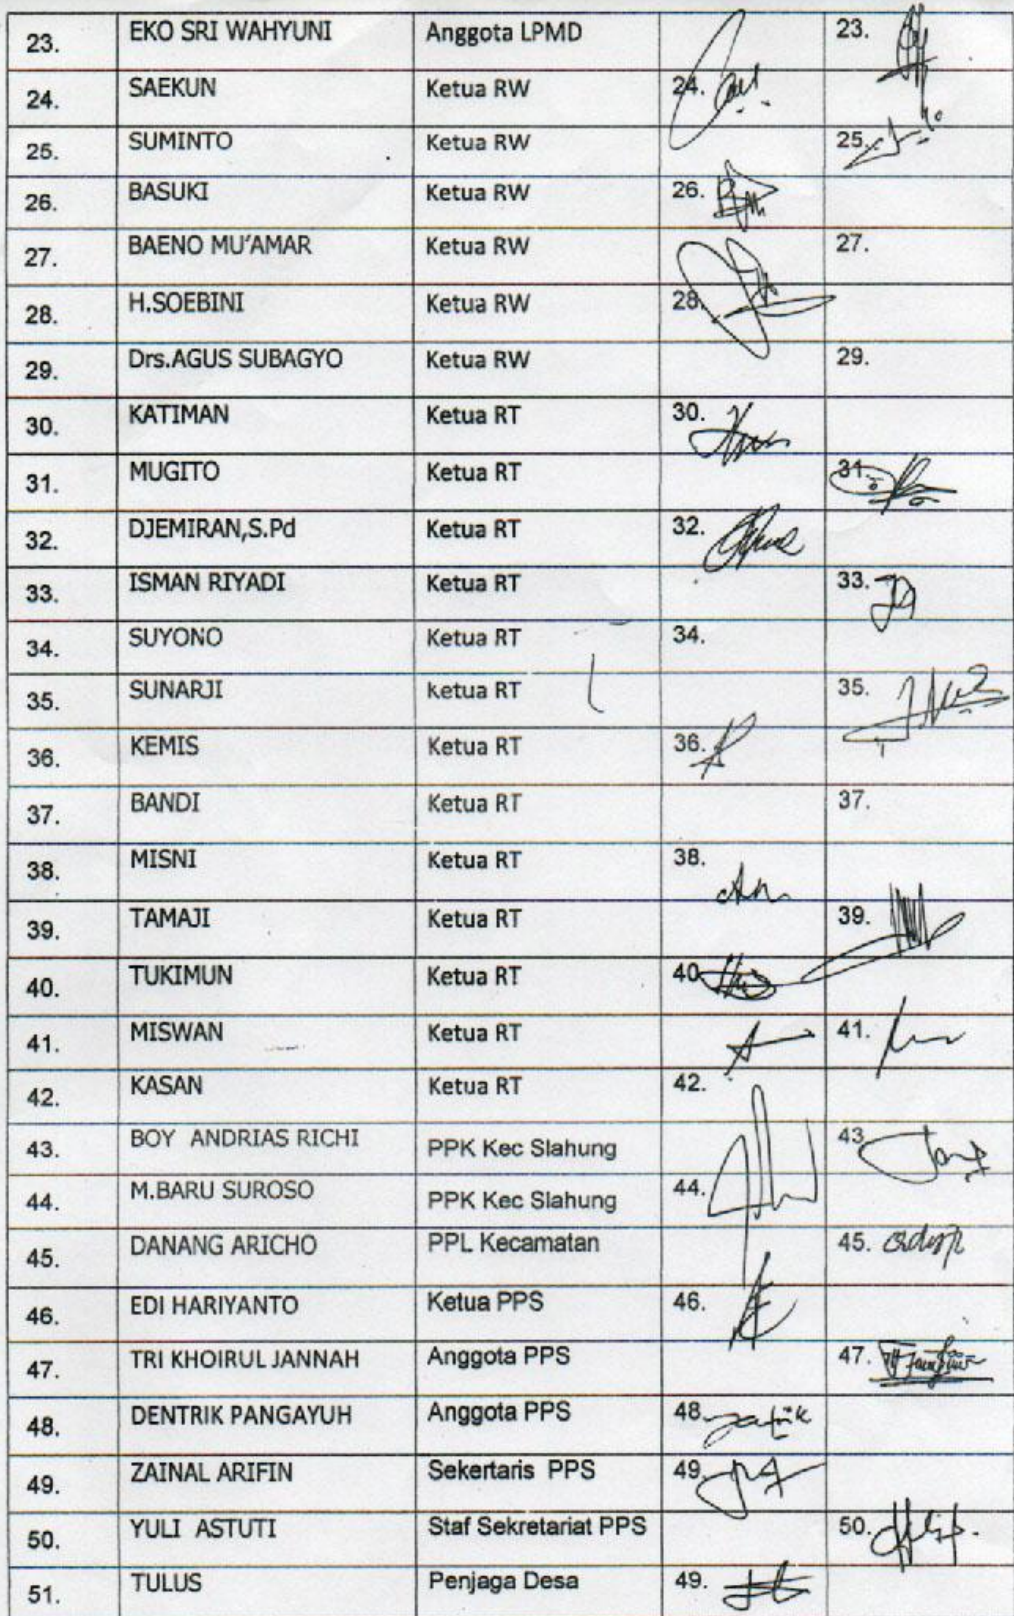 23. EKO SRI WAHYUNI Anggota LPMD 23.
24. SAEKUN Ketua RW 24.
25. SUMINTO Ketua RW 25.
26. BASUKI Ketua RW 26.
27. BAENO MU'AMAR Ketua RW 27.
28. H.SOEBINI Ketua RW 28.
29. Drs.AGUS SUBAGYO Ketua RW 29.
30. KATIMAN Ketua RT 30.
31. MUGITO Ketua RT 31.
32. DJEMIRAN,S.Pd Ketua RT 32.
33. ISMAN RIYADI Ketua RT 33.
34. SUYONO Ketua RT 34.
35. SUNARJI Ketua RT 35.
36. KEMIS Ketua RT 36.
37. BANDI Ketua RT 37.
38. MISNI Ketua RT 38.
39. TAMAJI Ketua RT 39.
40. TUKIMUN Ketua RT 40
41. MISWAN Ketua RT 41.
42. KASAN Ketua RT 42.
43. BOY ANDRIAS RICHI PPK Kec Slahung 43
44. M.BARU SUROSO PPK Kec Slahung 44.
45. DANANG ARICHO PPL Kecamatan 45.
46. EDI HARIYANTO Ketua PPS 46.
47. TRI KHOIRUL JANNAH Anggota PPS 47.
48. DENTRIK PANGAYUH Anggota PPS 48
49. ZAINAL ARIFIN Sekertaris PPS 49
50. YULI ASTUTI Staf Sekretariat PPS 50.
51. TULUS Penjaga Desa 49.